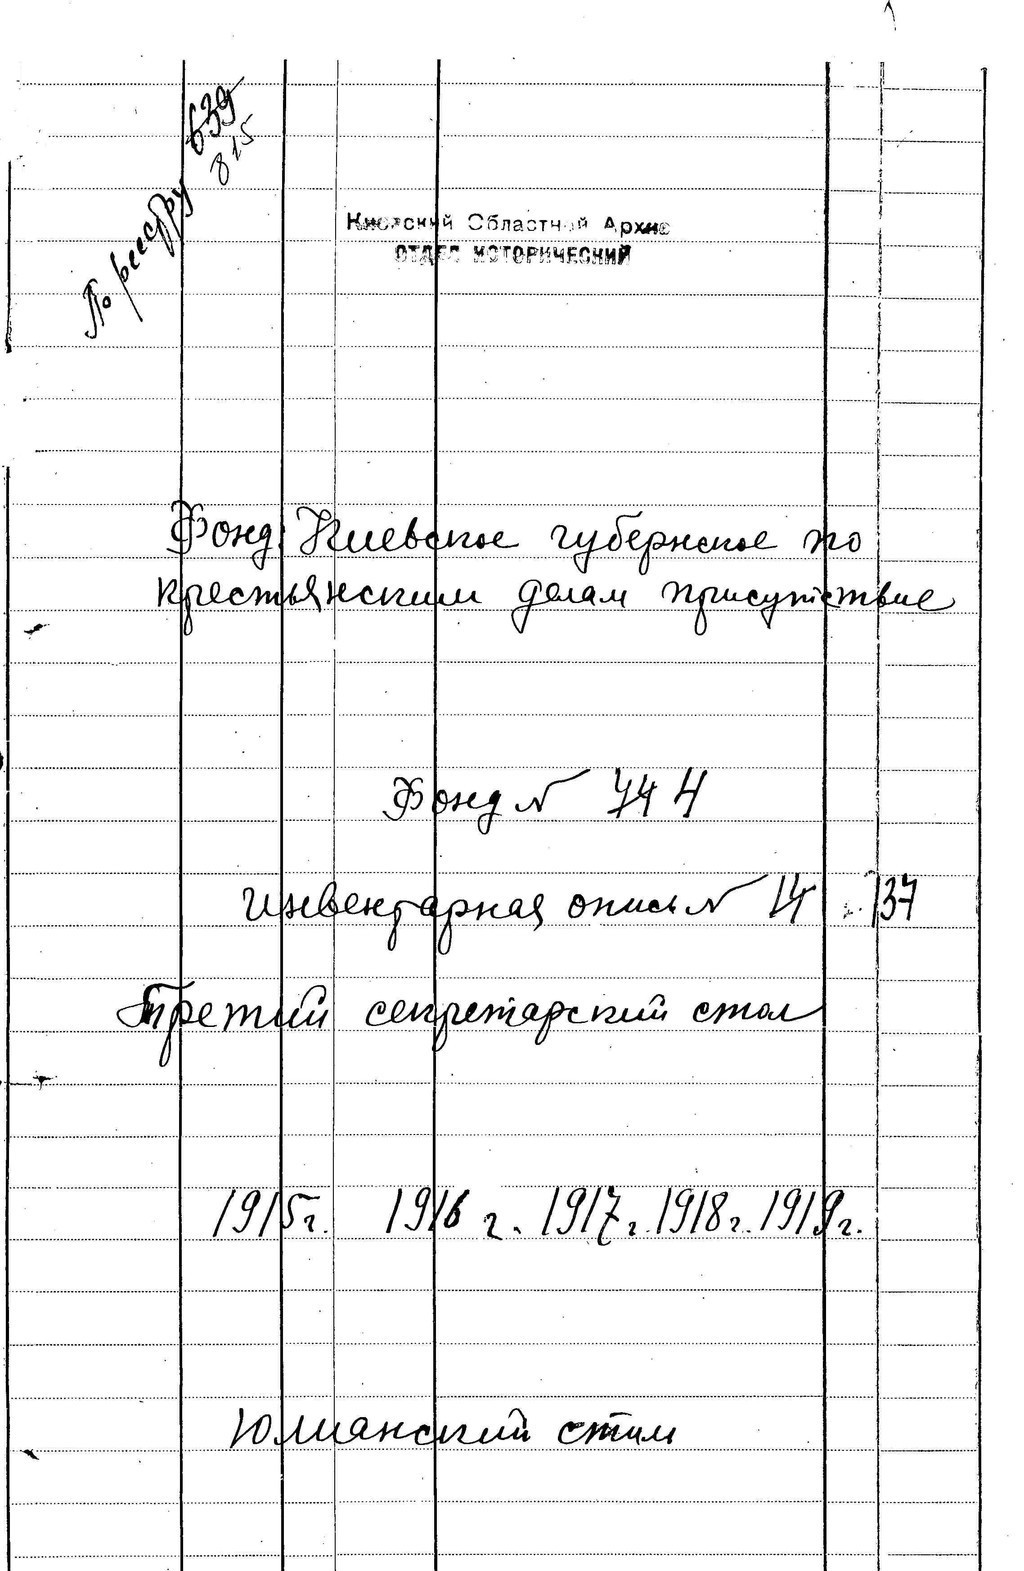 По реестру 639
815
Киевский Областной Архив
ОТДЕЛ ИСТОРИЧЕСКИЙ
Фонд Киевское губернское по
крестьянским делам присутствие
Фонд № 744
Инвентарная опись № 14
Третий секретарский стол
1915г. 1916 г. 1917г. 1918г. 1919г.
Юлианский стиль